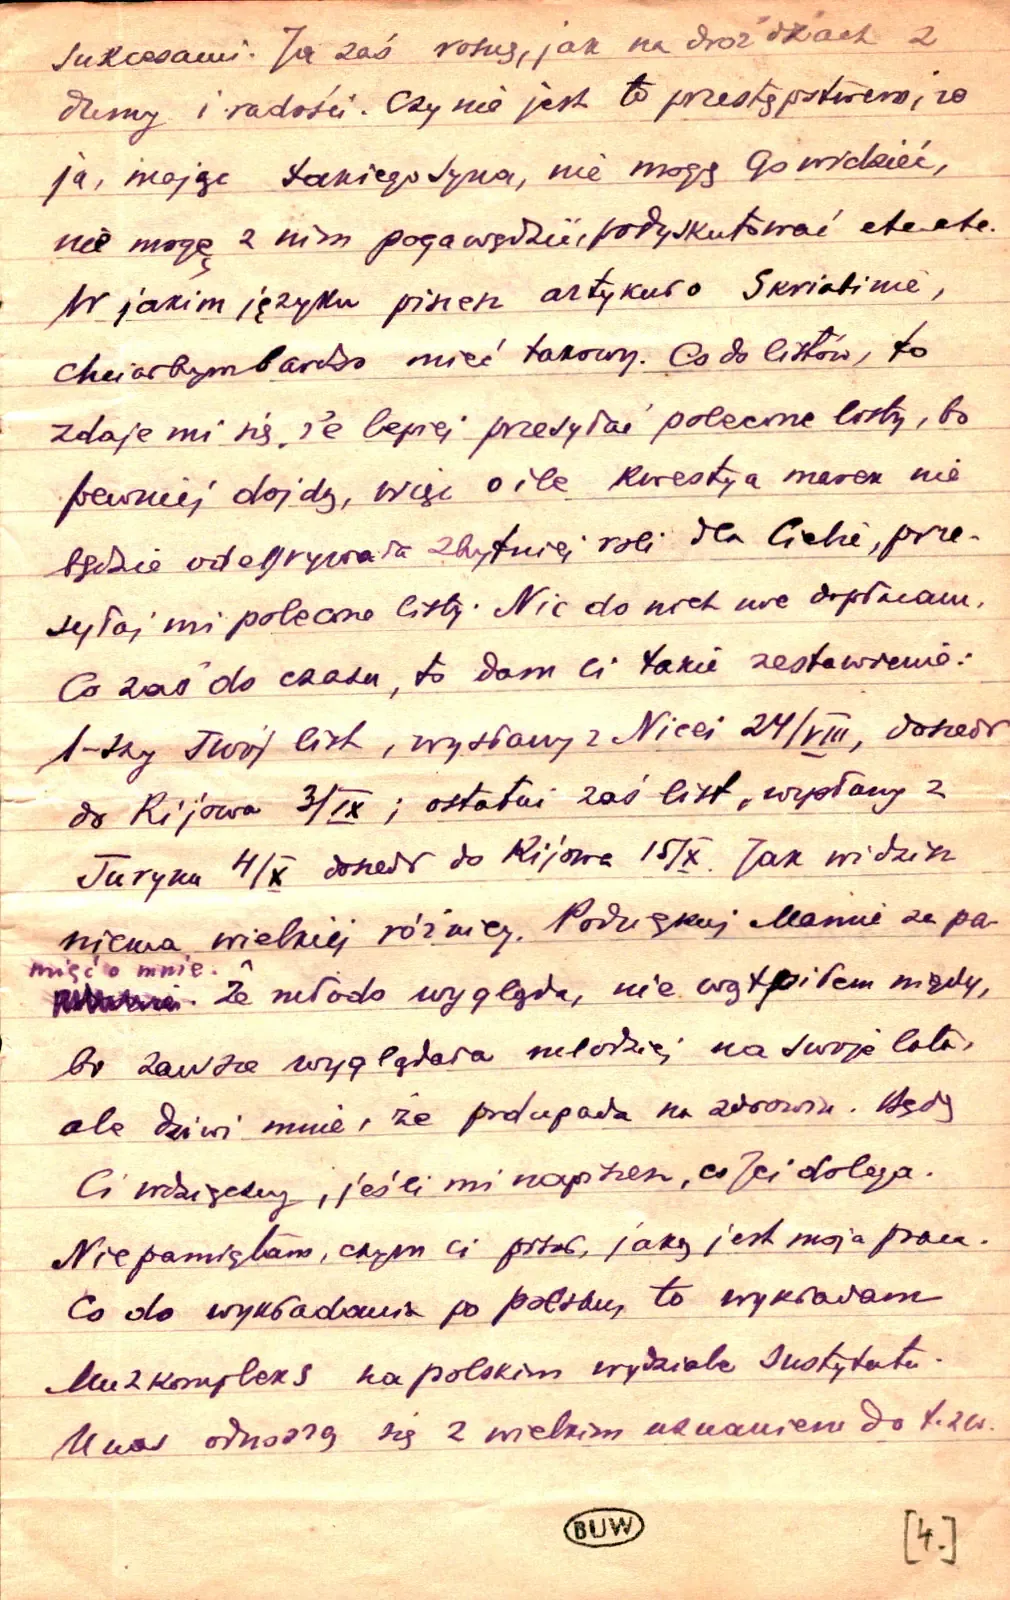 sukcesami. Ja zaś rosnę, jak na drożdżach z
dumy i radości. Czy nie jest to przestępstwem, że
ja, mając takiego syna, nie mogę Go widzieć,
nie mogę z nim pogawędzić, podyskutować etc. etc.
W jakim języku piszesz artykuł o Skriabinie,
chciałbym bardzo mieć takowy. Co do listów, to
zdaje mi się, że lepiej przesyłać polecone listy, bo
pewniej dojdą, więc o ile kwestya marek nie
będzie odegrywała zbytniej roli dla Ciebie, prze-
syłaj mi polecone listy. Nic do nich nie dopłacam.
Co zaś do czasu, to dam Ci takie zestawienie:
1-szy Twój list, wysłany z Nicei 24/VIII, doszedł
do Kijowa 3/IX; ostatni zaś list, wysłany z
Turynu 4/X doszedł do Kijowa 15/X. Jak widzisz
niema wielkiej różnicy. Podziękuj Mamie za pa-
mięć o mnie. Że młodo wygląda, nie wątpiłem nigdy,
bo zawsze wyglądała młodziej na swoje lata,
ale dziwi mnie, że podupada na zdrowiu. Będę
Ci wdzięczny, jeśli mi napiszesz, co Jej dolega.
Nie pamiętam, czym Ci pisał, jaką jest moja praca.
Co do wykładania po polsku, to wykładam
Muzkompleks na polskim wydziale Instytutu.
U nas odnoszą się z wielkim uznaniem do t. zw.
BUW
[4.]